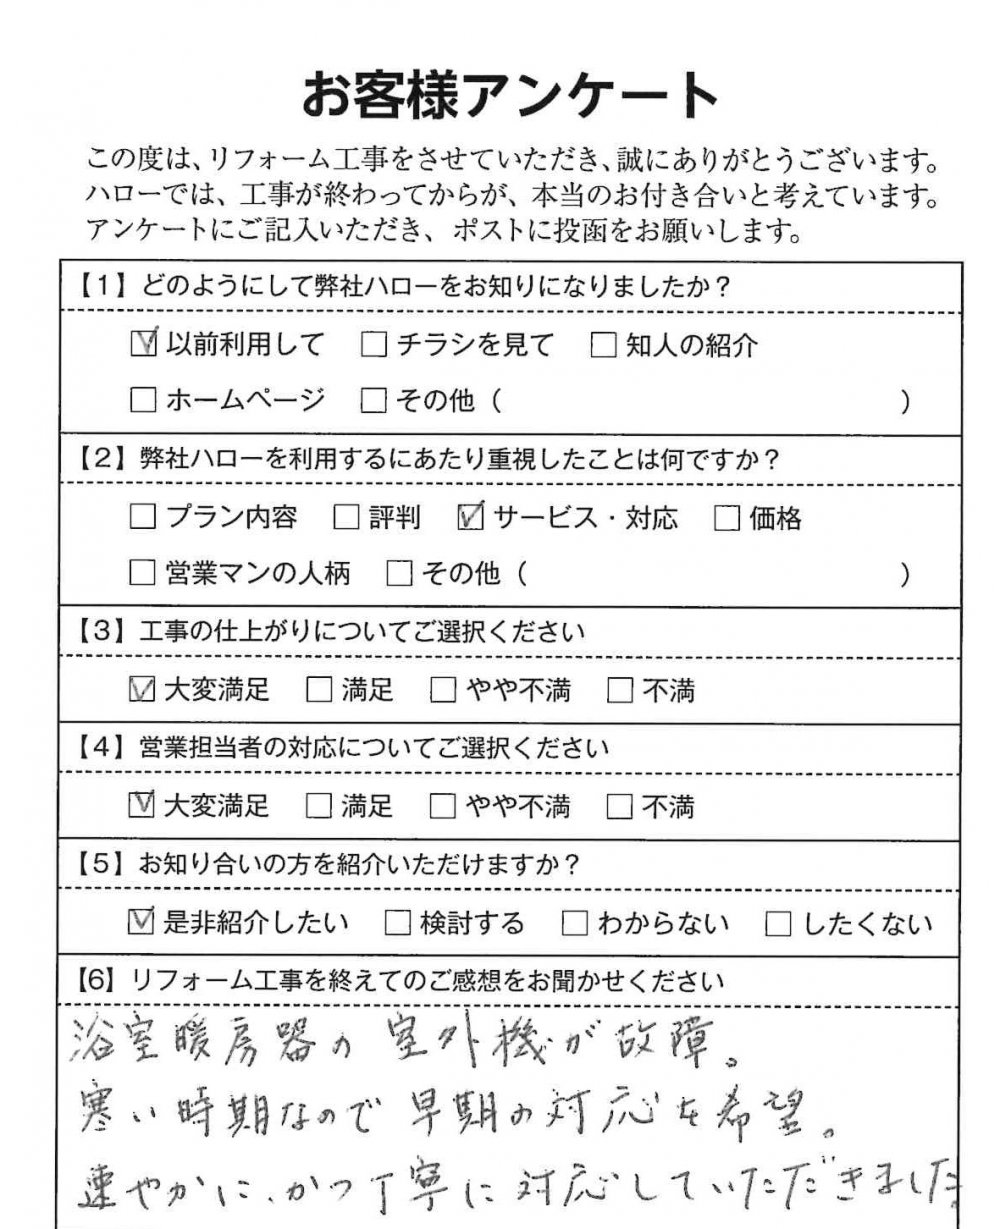 お客様アンケート
この度は、リフォーム工事をさせていただき、誠にありがとうございます。
ハローでは、工事が終わってからが、本当のお付き合いと考えています。
アンケートにご記入いただき、ポストに投函をお願いします。
【1】どのようにして弊社ハローをお知りになりましたか？
☑以前利用して □チラシを見て □知人の紹介
□ホームページ □その他（ ）
【2】弊社ハローを利用するにあたり重視したことは何ですか？
□プラン内容 □評判 ☑サービス・対応 □価格
□営業マンの人柄 □その他（ ）
【3】工事の仕上がりについてご選択ください
☑大変満足 □満足 □やや不満 □不満
【4】営業担当者の対応についてご選択ください
☑大変満足 □満足 □やや不満 □不満
【5】お知り合いの方を紹介いただけますか？
☑是非紹介したい □検討する □わからない □したくない
【6】リフォーム工事を終えてのご感想をお聞かせください
浴室暖房器の室外機が故障。
寒い時期なので早期の対応を希望。
速やかに、かつ丁寧に対応していただきました